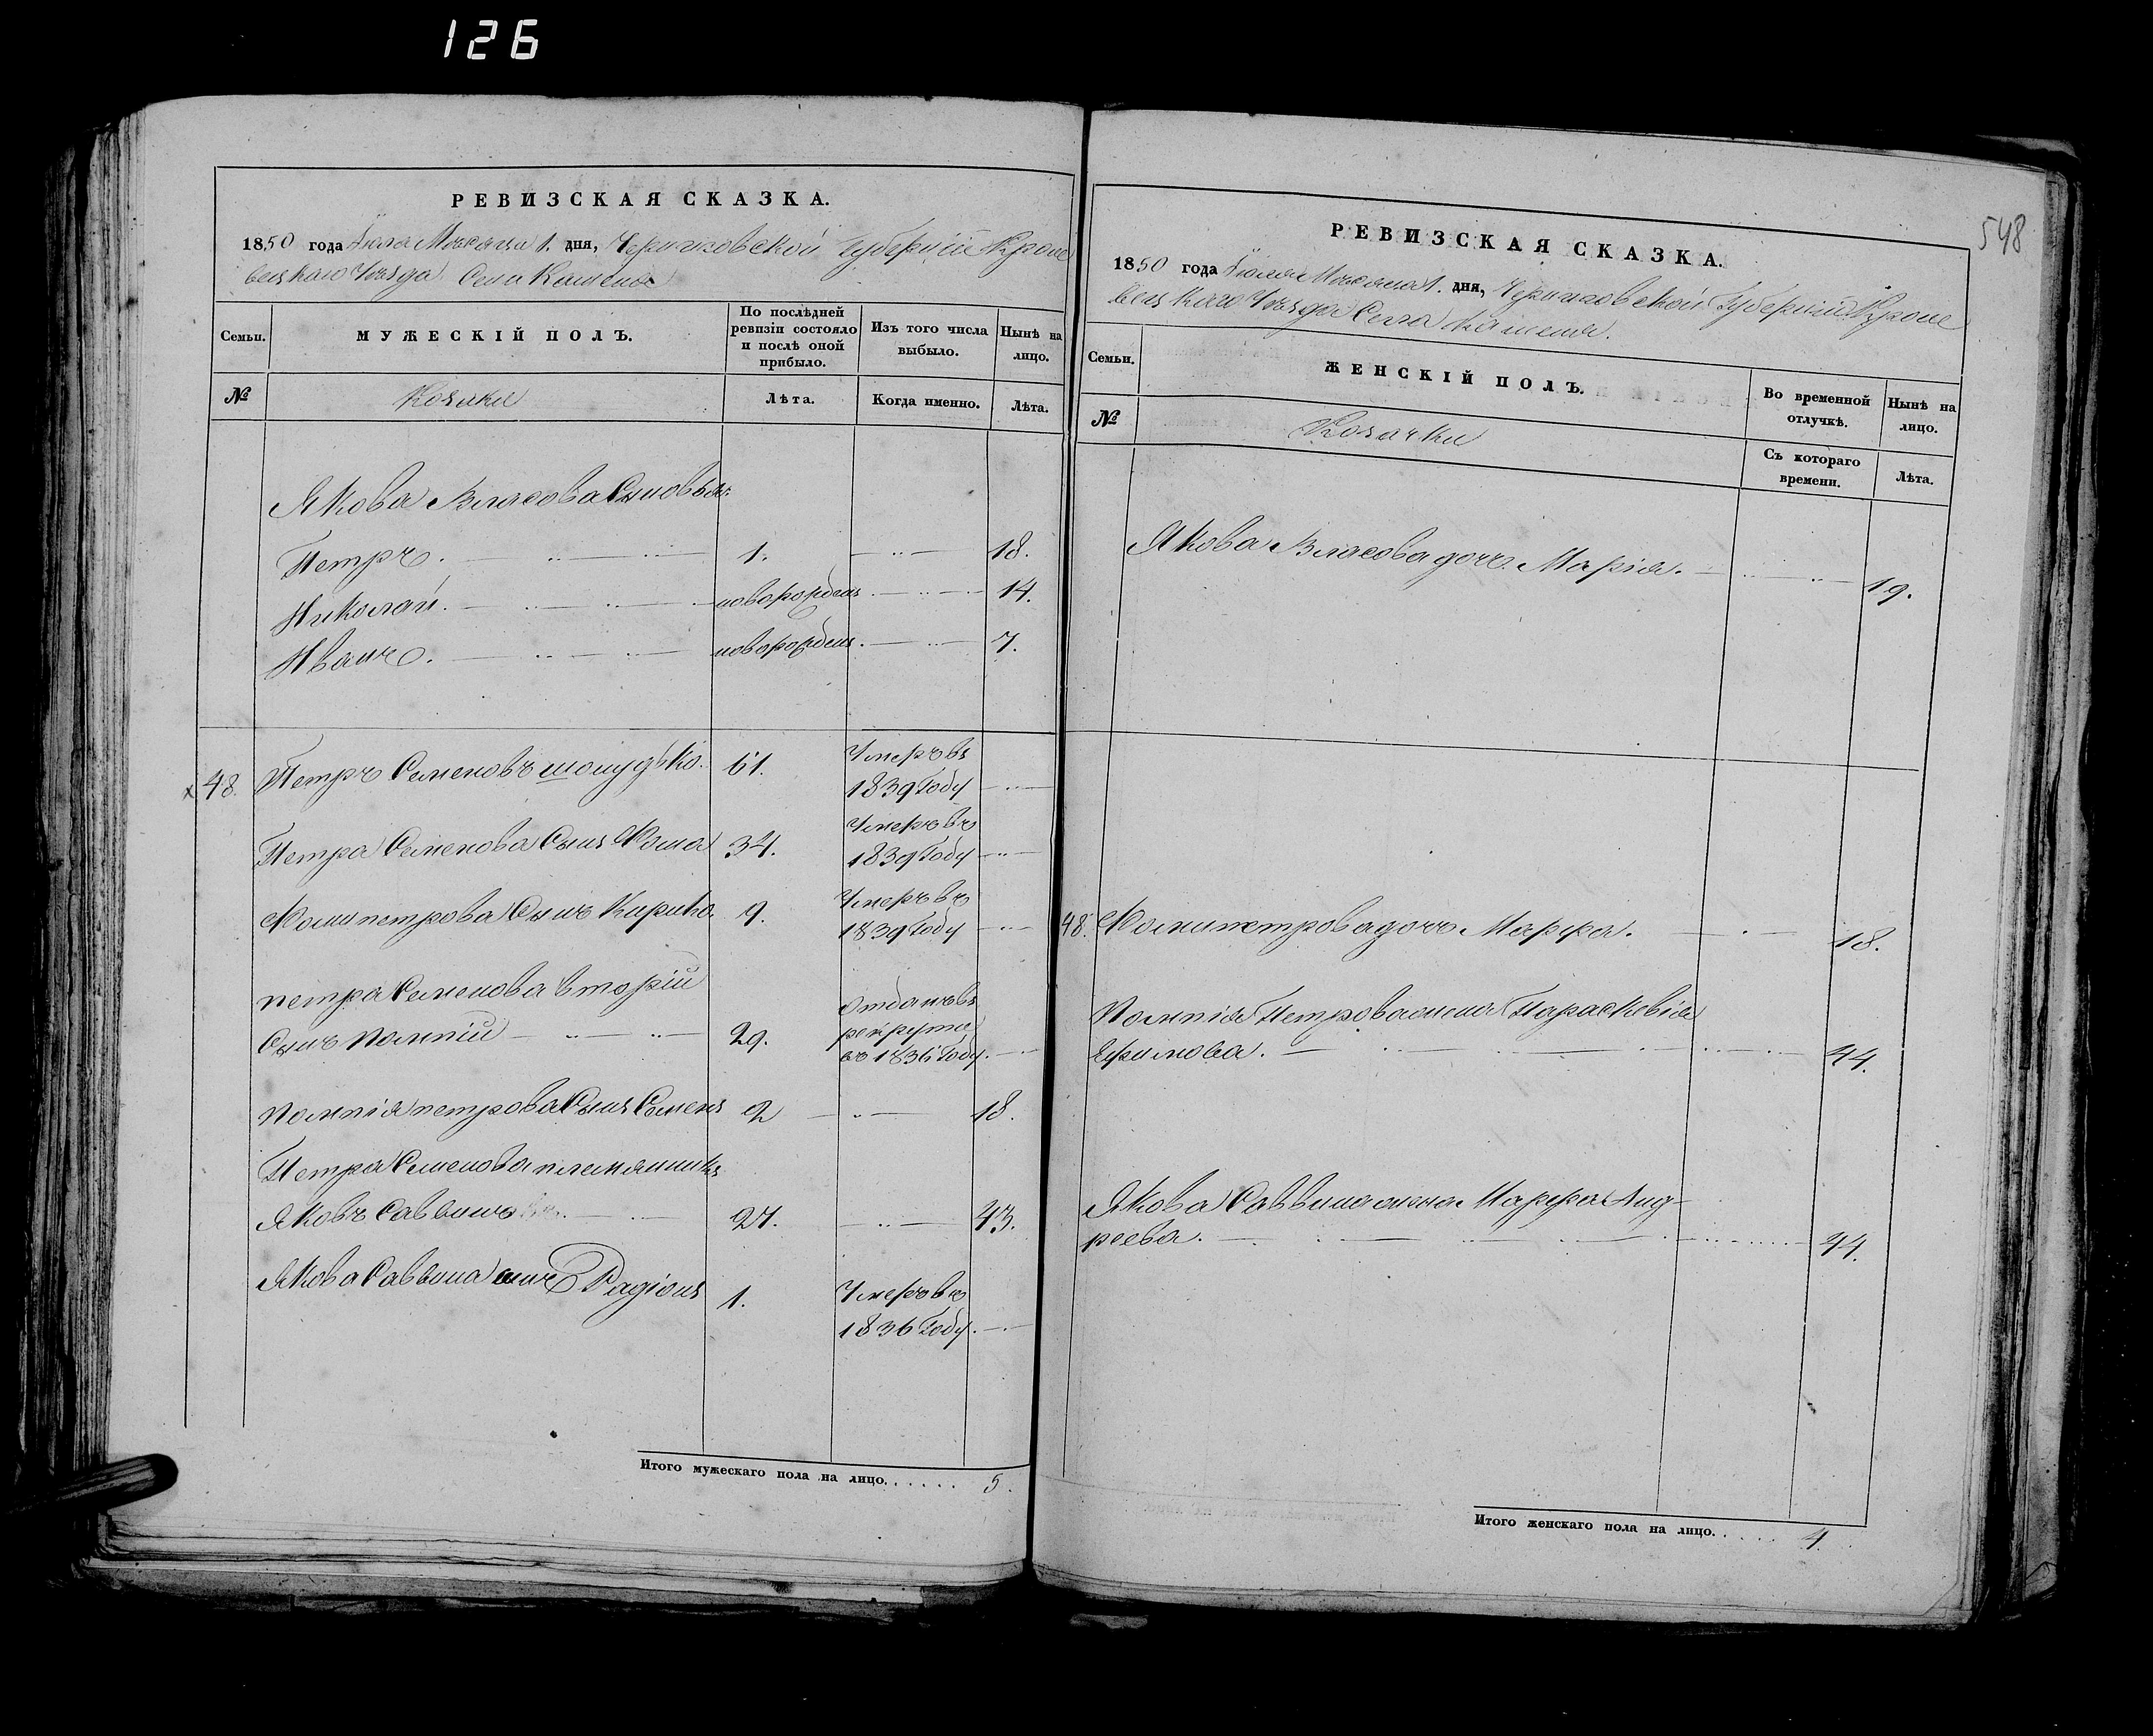 126
РЕВИЗСКАЯ СКАЗКА.
1850 года Іюля Месяца 1. дня, Черниговской Губерніи Кроле
вецкаго Уезда Села Каменя
Семьи.
МУЖЕСКІЙ ПОЛЪ.
По послѣдней ревизіи состояло и послѣ оной прибыло.
Изъ того числа выбыло.
Нынѣ на лицо.
№
Козаки
Лѣта.
Когда именно.
Лѣта.
Якова Власова Сыновья:
Петръ. 1. 18.
Николай. новорожден 14.
Иванъ. новорожден. 7.
48. Петръ Семеновъ шошудько. 61. Умеръ въ
1839 Году
Петра Семенова Сынъ Фома 34. Умеръ въ
1839 Году
Фомы петрова Сынъ Карпъ 9. Умеръ въ
1839 Году
петра Семенова вторій
Сынъ Помпій 29. Отданъ въ
рекруты
въ 1836 Году.
Помпія петрова Сынъ Семенъ 2 18.
Петра Семенова племянникъ
Яковъ Саввинъ 27. 43.
Якова Саввина сынъ Радіонъ 1. Умеръ въ
1836 Году.
Итого мужескаго пола на лицо. 5.
548
РЕВИЗСКАЯ СКАЗКА.
1850 года Іюля Месяца 1. дня, Черниговской Губерніи Кроле
вецкаго Уезда Села Каменя.
Семьи.
ЖЕНСКІЙ ПОЛЪ.
Во временной отлучкѣ.
Нынѣ на лицо.
№
Козачки
Съ котораго времени.
Лѣта.
Якова Власова дочь Марія. 19.
48. Фомы петрова дочь Марфа. 18.
Помпія Петрова жена Параскевія
Ефимова. 44.
Якова Саввина жена Марфа Анд-
реева. 44.
Итого женскаго пола на лицо. 4.